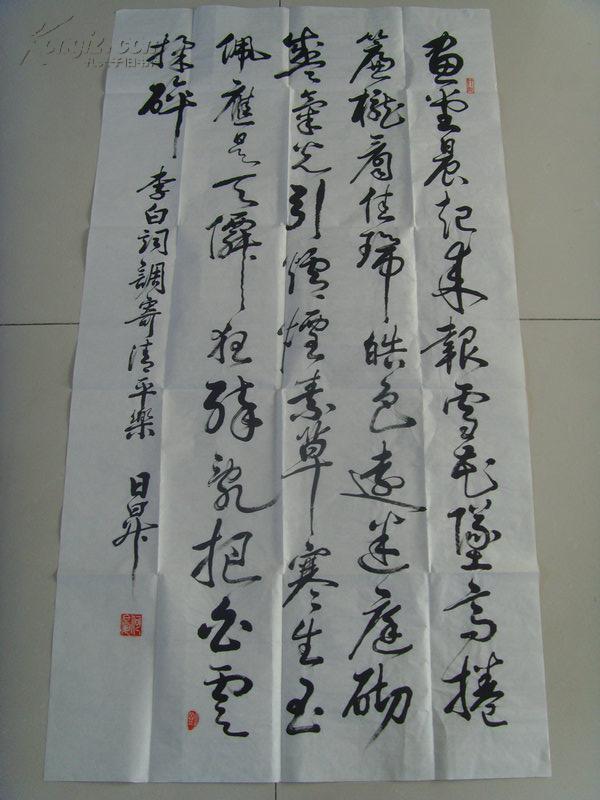 畫堂晨起來報雪花墜高捲
簾櫳看佳瑞皓色遠迷庭砌
盛氣光引爐煙素草寒生玉
佩應是天僊狂醉亂把白雲
揉碎 李白詞調寄清平樂 日昇
Kongfz.com
孔夫子旧书网